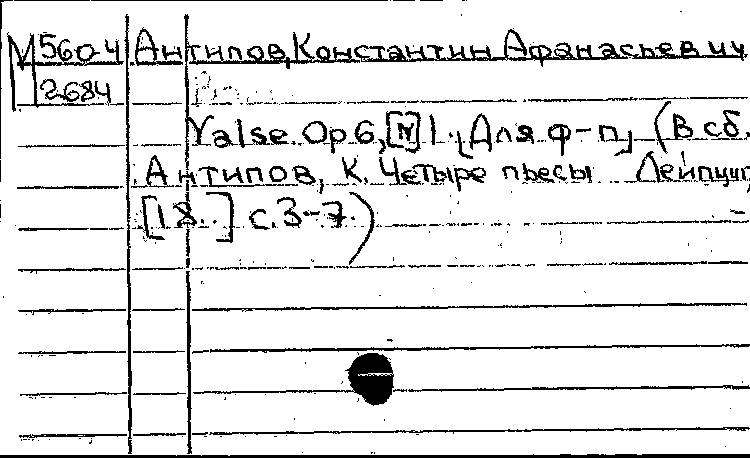 М560-4 Антипов, Константин Афанасьевич
2684
Valse. Op 6, [N] 1. [Для ф-п] (В сб.
Антипов, К. Четыре пьесы Лейпциг,
[18..] с. 3-7.)